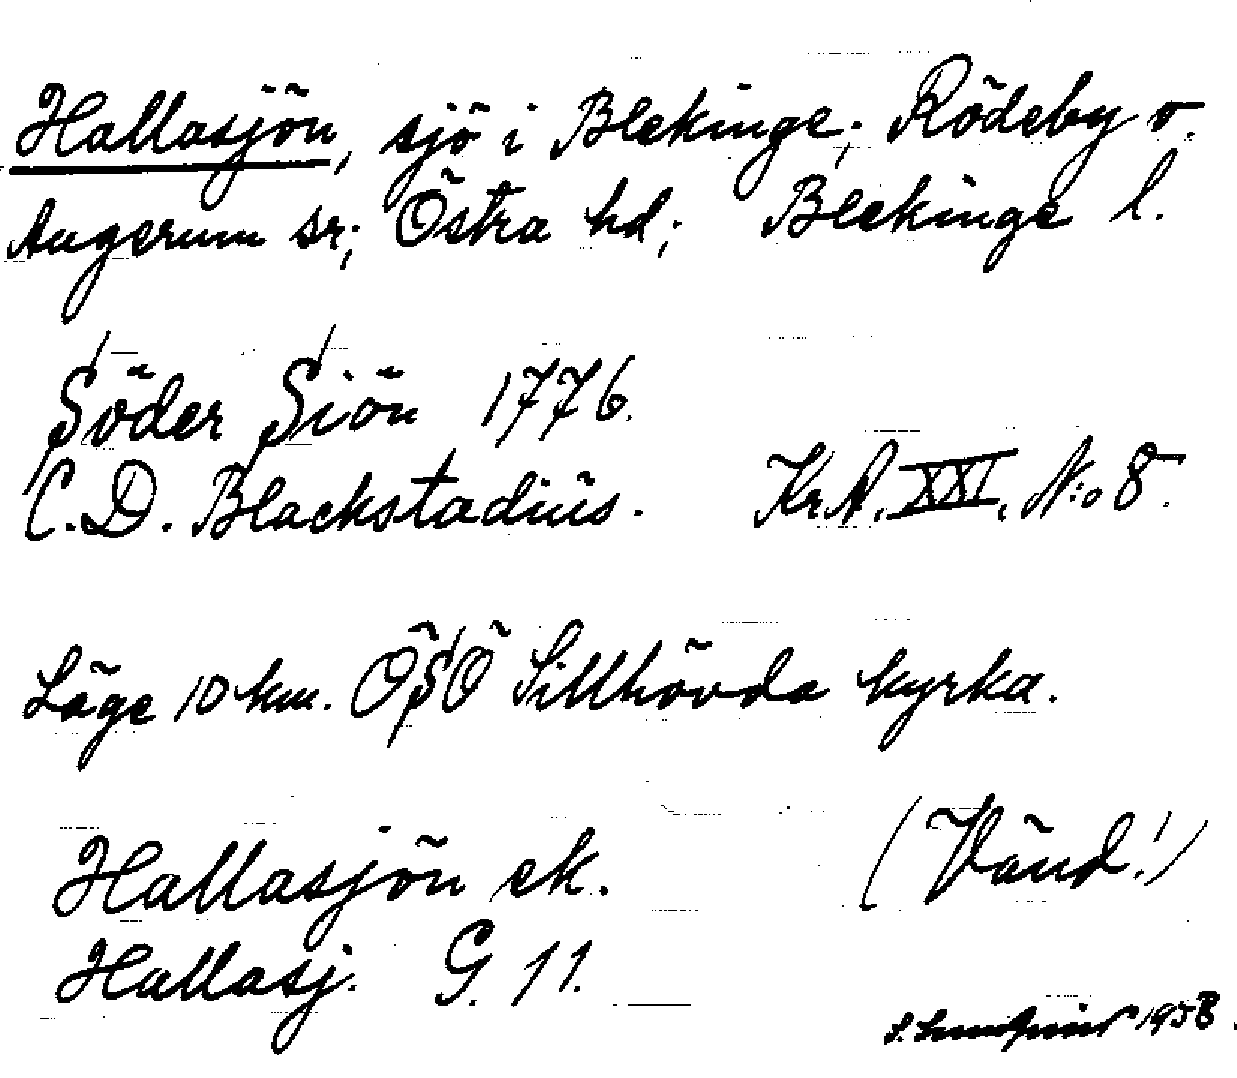 Hallasjön, sjö i Blekinge; Rödeby o.
Augerum sr; Östra hd; Blekinge l.
Söder Siön 1776.
C. D. Blackstadius. Kr. A. XXI. N:o 8.
Läge 10 km. ÖSÖ Sillhövda kyrka.
Hallasjön ek. (Vänd!)
Hallasj. G. 11.
S. Lundquist 1958.